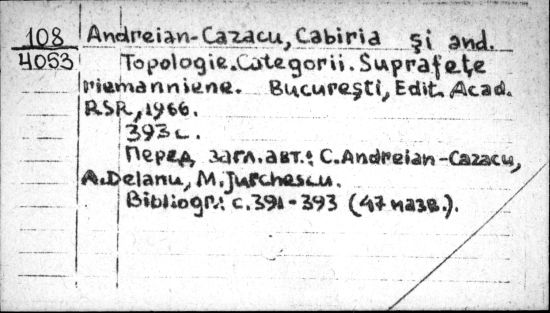 108
4053
Andreian-Cazacu, Cabiria și and.
Topologie. Categorii. Suprafețe
riemanniene. București, Edit. Acad.
RSR, 1966.
393 с.
Перед загл. авт.: C. Andreian-Cazacu,
A. Delanu, M. Jurchescu.
Bibliogr.: с. 391-393 (47 назв.).